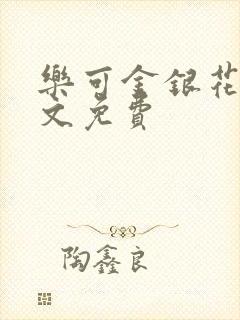 樂可金銀花
文免費
陶鑫良